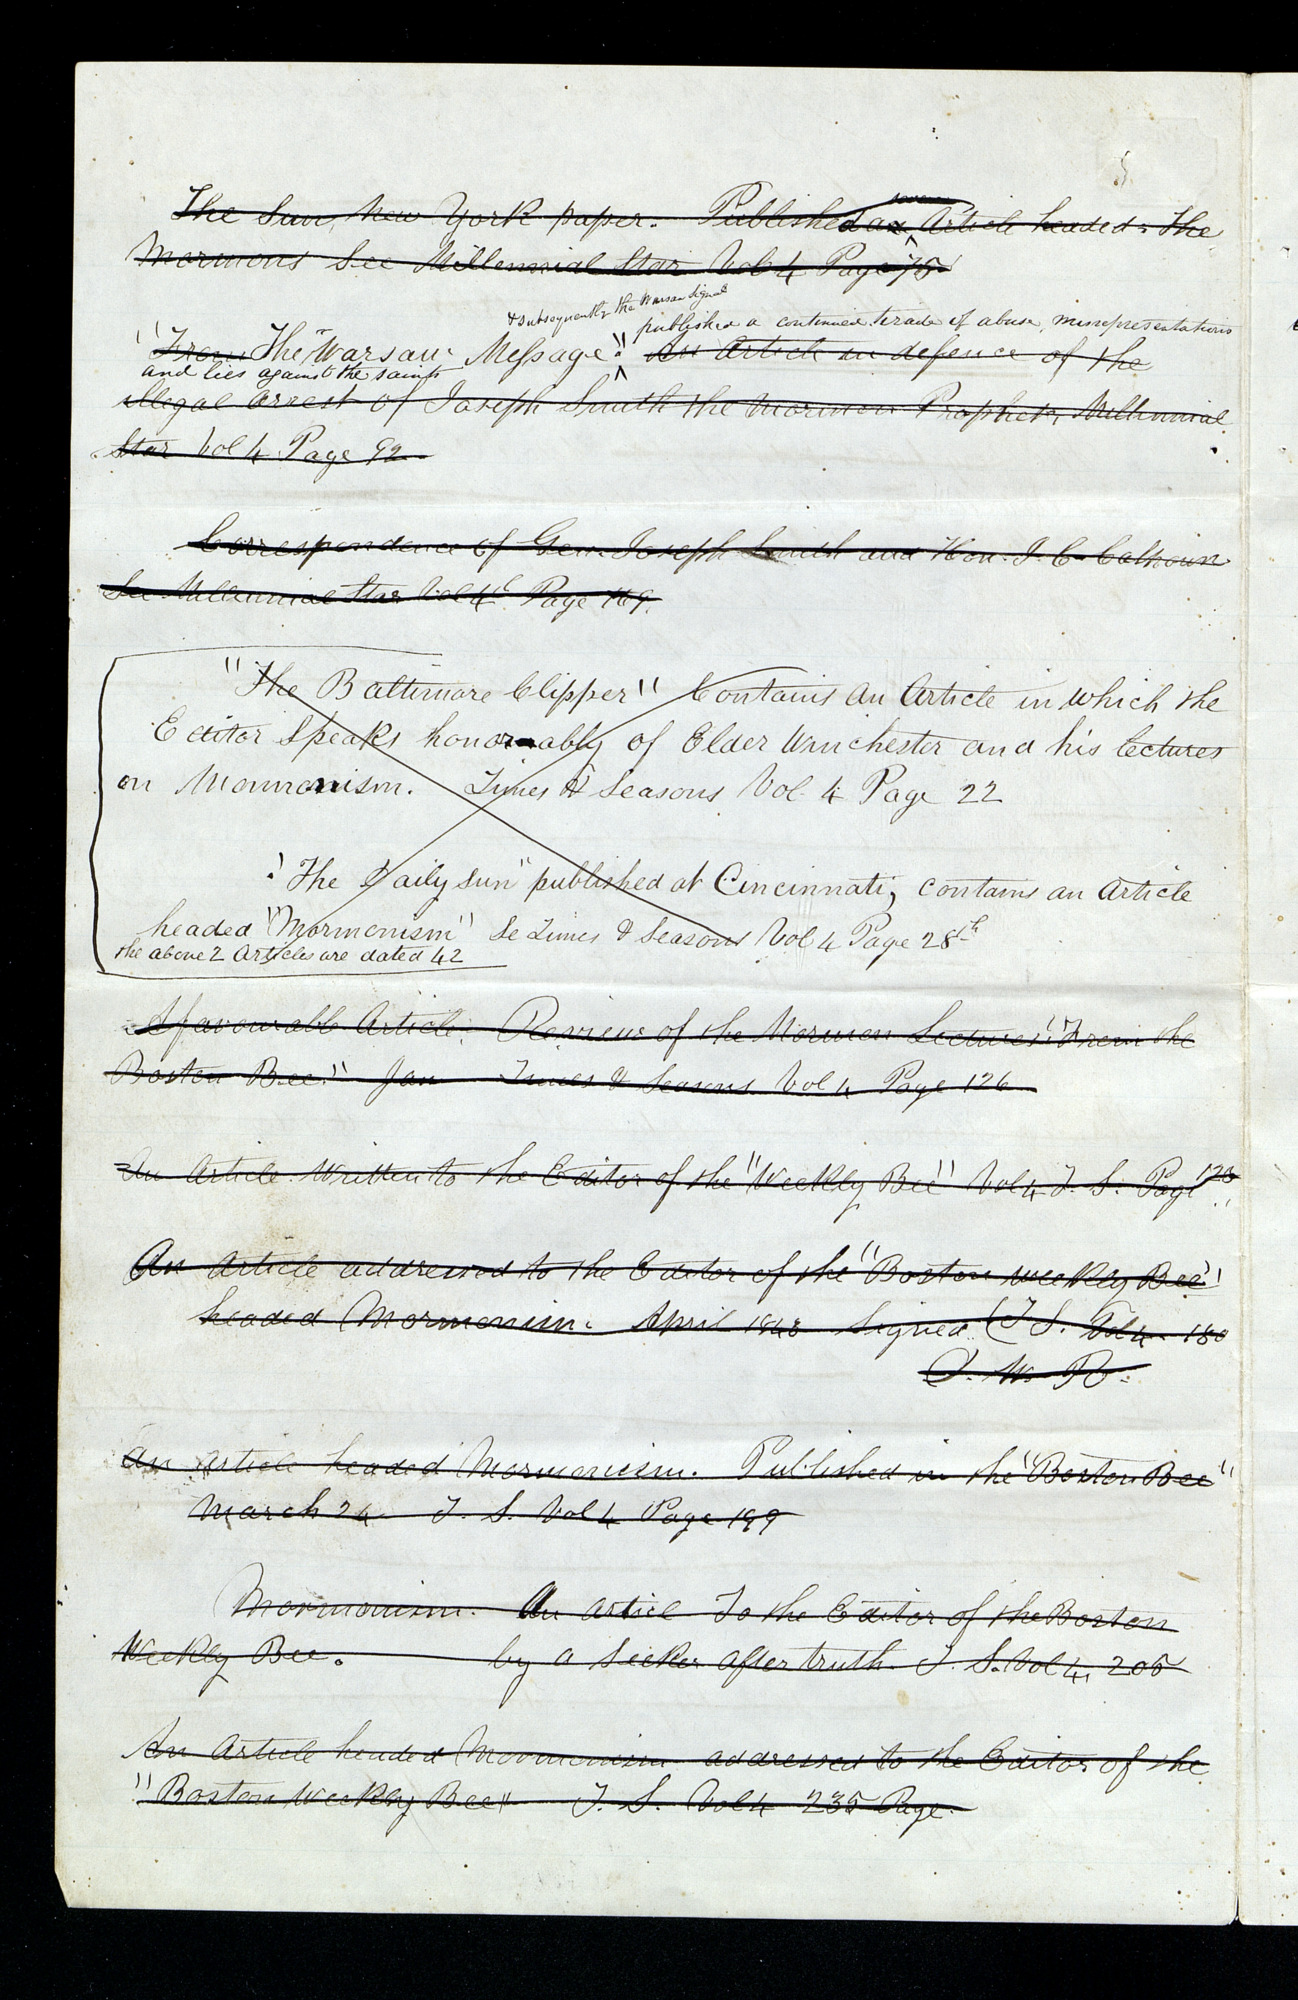 severe
The Sun, New York paper. Published an Article headed: The
Mormons See Millennial Star Vol 4 Page 75
& subsequently the Warsaw Signal
published a continued tirade of abuse, misrepresentations
"From The "Warsaw Message". An Article in defence of the
and lies against the saints
illegal Arrest of Joseph Smith the Mormon Prophet, Millennial
Star Vol 4 Page 92
Correspondence of Gen. Joseph Smith and Hon. J. C. Calhoun
See Millennial Star Vol 4 Page 169.
"The Baltimore Clipper" Contains An Article in which the
Editor Speaks honorably of Elder Winchester and his lectures
on Mormonism. Times & Seasons Vol 4 Page 22
"The Daily Sun" published at Cincinnati, contains an Article
headed "Mormonism" Se Times & Seasons Vol 4 Page 28th
the above 2 Articles are dated 42
A favourabl Article. Review of the Mormon Lectures "From the
Boston Bee" Jan Times & Seasons Vol 4 Page 126
An Article Written to the Editor of the "Weekly Bee" Vol 4 T. S. Page 128
An Article addressed to the Editor of the "Boston weekly Bee"
headed Mormonism. April 1843 Signed (T S. Vol 4 180
An Article headed Mormonism. Published in the "Boston Bee"
March 24 T. S. Vol 4 Page 199
Mormonism. An Articl To the Editor of the Boston
Weekly Bee. by a Seeker after truth. T. S. Vol 4, 205
An Article headed Mormonism addressed to the Editor of the
"Boston Weekly Bee" T. S. Vol 4 235 Page.